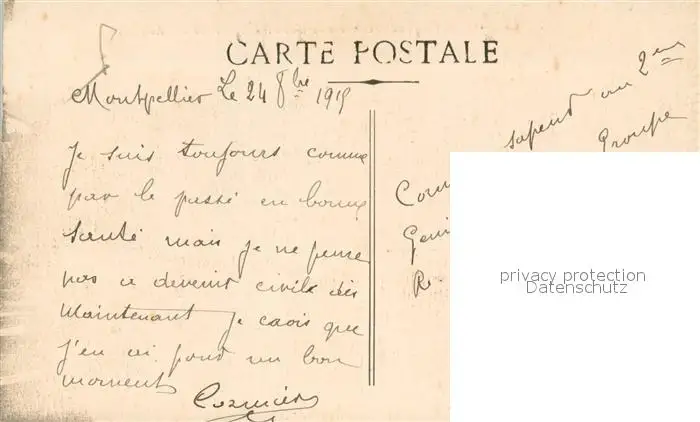 CARTE POSTALE
Montpellier Le 24 8bre 1915
Je suis toujours comme
par le passé en bonne
santé mais je ne pense
pas a devenir civile dès
Maintenant je caois que
j'en ai pour un bon
moment
Cormier
sapeur au 2em
Groupe
privacy protection
Datenschutz